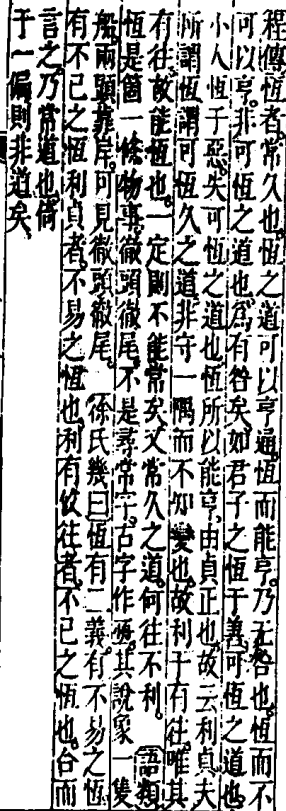 程傳恆者常久也恆之道可以亨通恆而能亨乃无咎也恆而不
可以亨非可恆之道也爲有咎矣如君子之恆于善可恆之道也
小人恆于惡失可恆之道也恆所以能亨由貞正也故云利貞夫
所謂恆謂可恆久之道非守一隅而不知變也故利于有往唯其
有往故能恆也一定則不能常矣又常久之道何往不利 語類
恆是箇一條物事徹頭徹尾不是尋常字古字作𠄨其說象一隻
船兩頭靠岸可見徹頭徹尾 徐氏幾曰恆有二義有不易之恆
有不已之恆利貞者不易之恆也利有攸往者不已之恆也合而
言之乃常道也倚
于一偏則非道矣